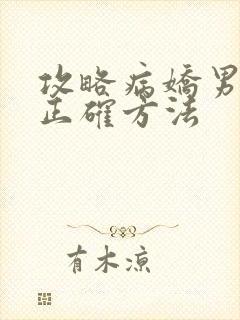 攻略病嬌男
正確方法
有木涼